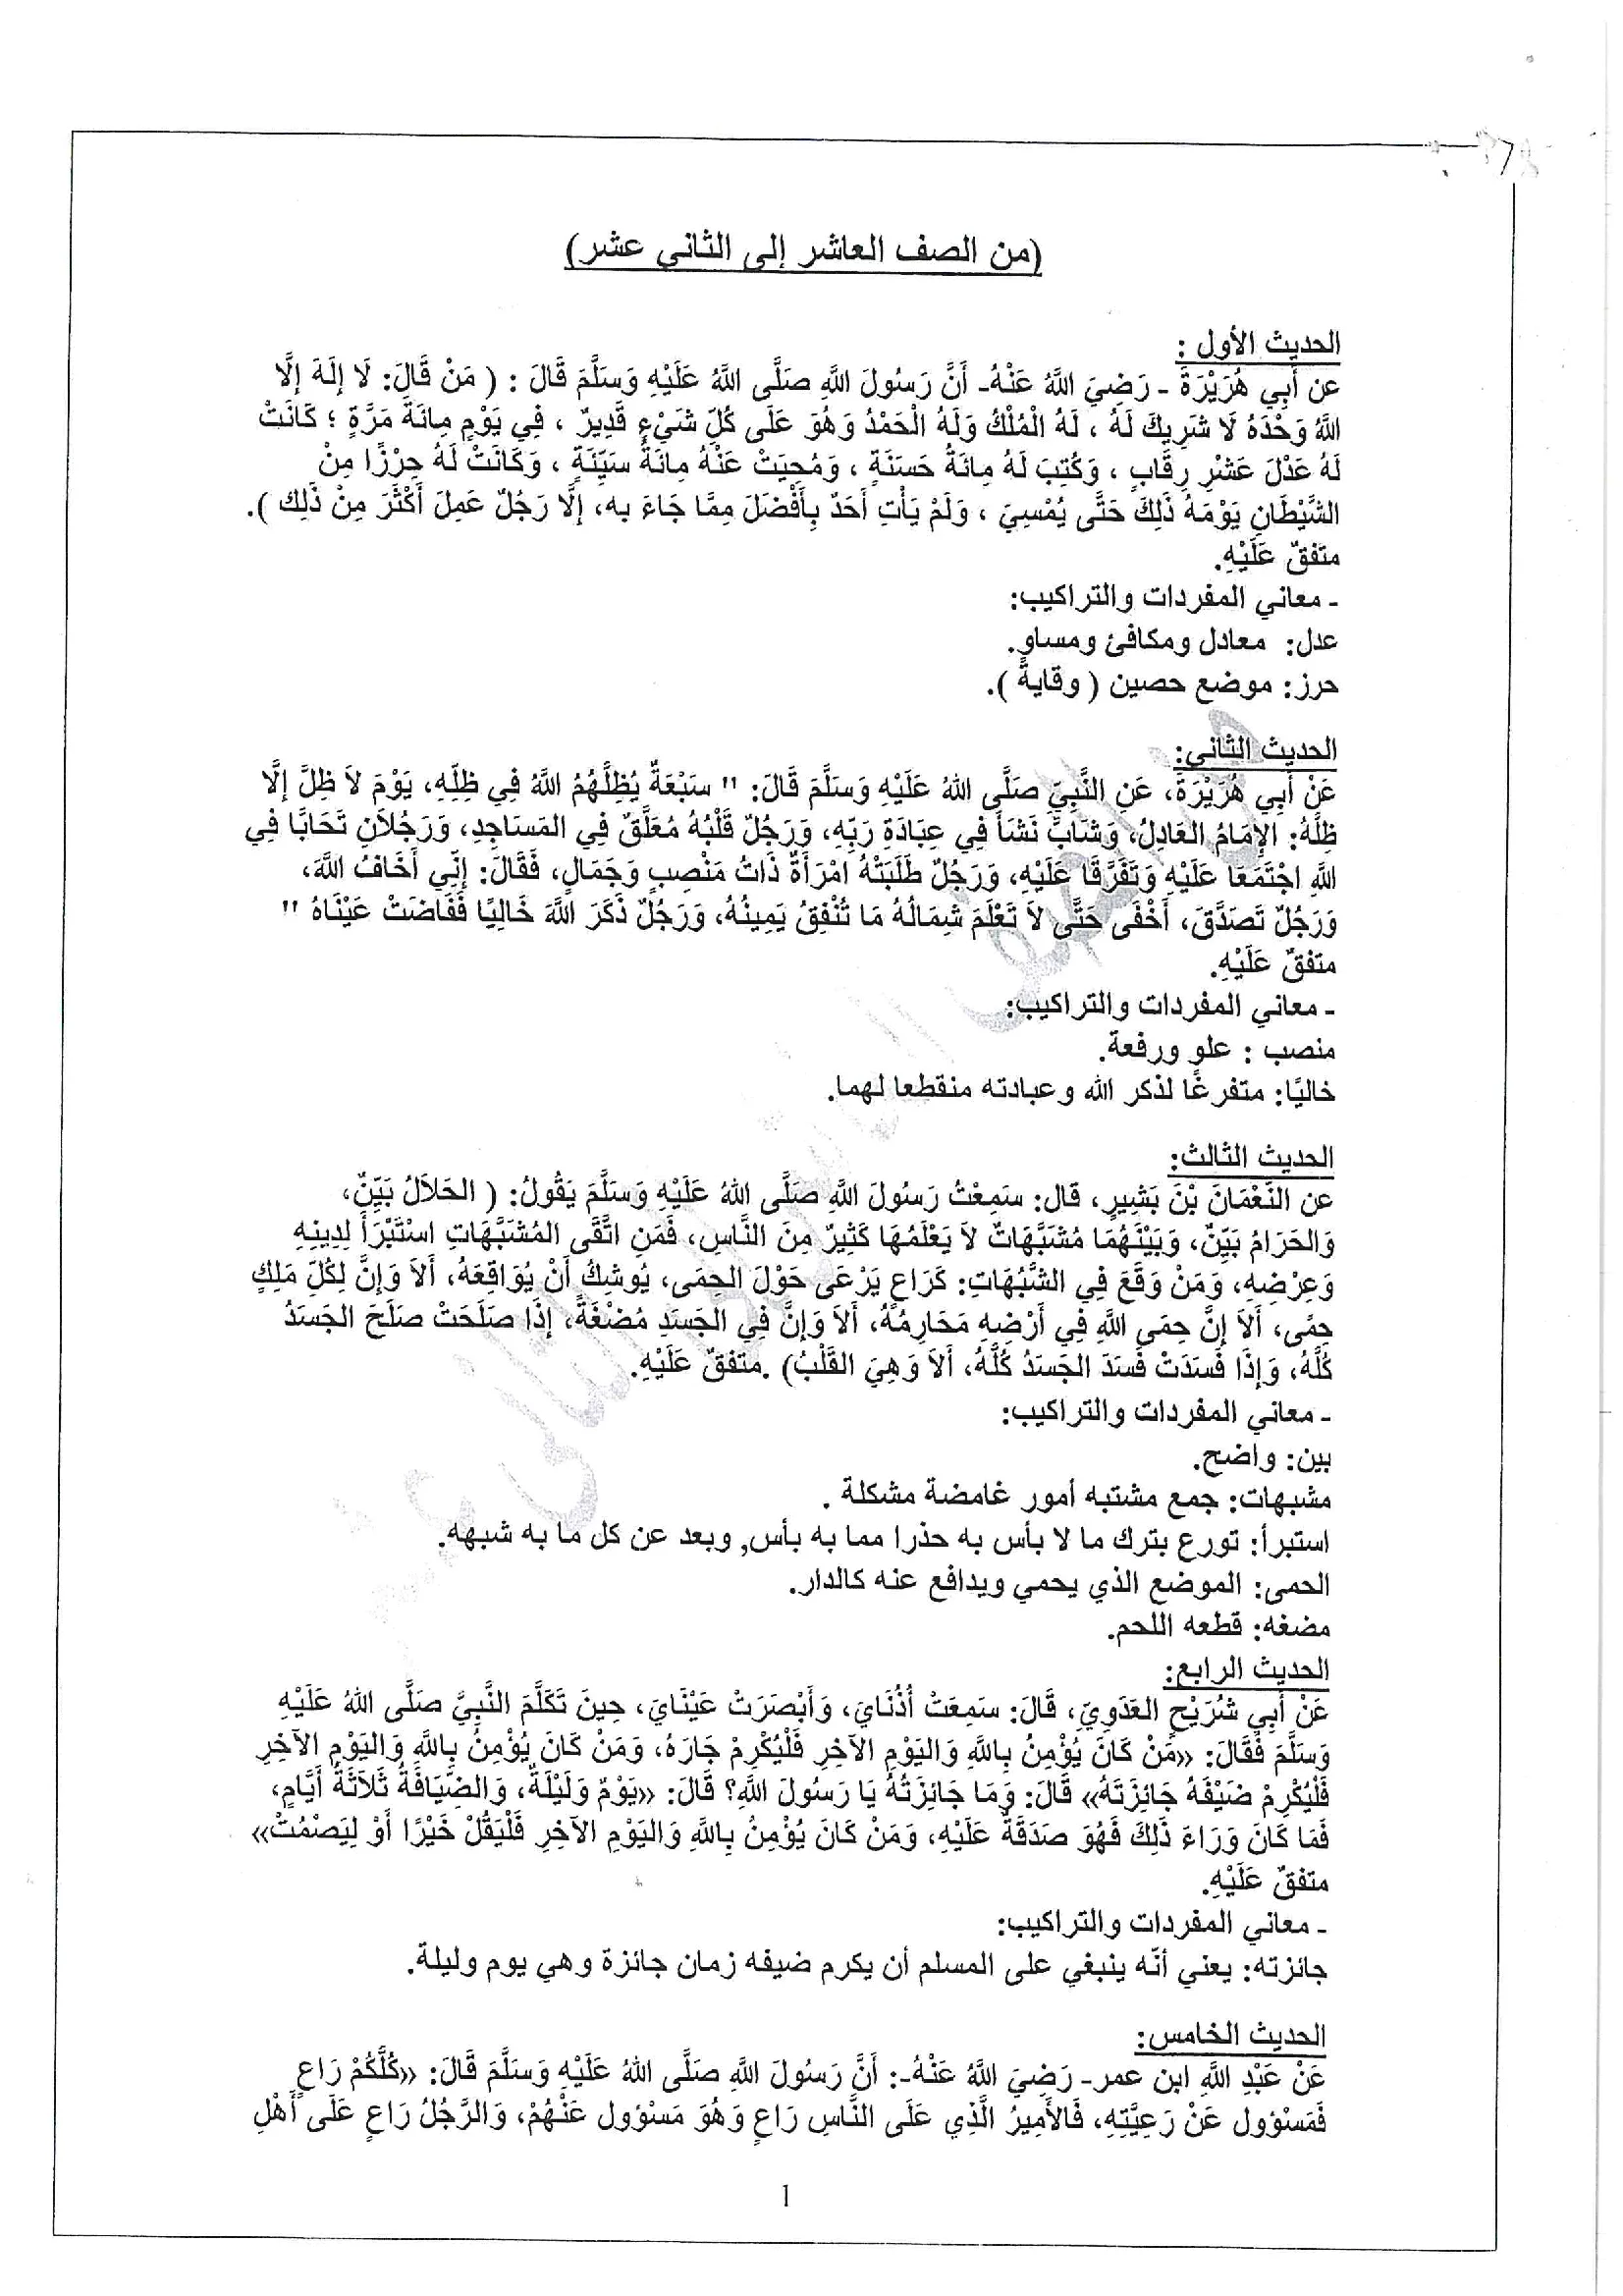 (من الصف العاشر إلى الثاني عشر)
الحديث الأول :
عن أَبِي هُرَيْرَةَ - رَضِيَ اللَّهُ عَنْهُ- أَنَّ رَسُولَ اللَّهِ صَلَّى اللَّهُ عَلَيْهِ وَسَلَّمَ قَالَ : ( مَنْ قَالَ: لَا إِلَهَ إِلَّا
اللَّهُ وَحْدَهُ لَا شَرِيكَ لَهُ ، لَهُ الْمُلْكُ وَلَهُ الْحَمْدُ وَهُوَ عَلَى كُلِّ شَيْءٍ قَدِيرٌ ، فِي يَوْمٍ مِائَةَ مَرَّةٍ ؛ كَانَتْ
لَهُ عَدْلَ عَشْرِ رِقَابٍ ، وَكُتِبَ لَهُ مِائَةُ حَسَنَةٍ ، وَمُحِيَتْ عَنْهُ مِائَةُ سَيِّئَةٍ ، وَكَانَتْ لَهُ حِرْزًا مِنْ
الشَّيْطَانِ يَوْمَهُ ذَلِكَ حَتَّى يُمْسِيَ ، وَلَمْ يَأْتِ أَحَدٌ بِأَفْضَلَ مِمَّا جَاءَ به، إِلَّا رَجُلٌ عَمِلَ أَكْثَرَ مِنْ ذَلِك ).
متفقٌ عَلَيْهِ.
- معاني المفردات والتراكيب:
عدل: معادل ومكافئ ومساوٍ.
حرز: موضع حصين ( وقايةً ).
الحديث الثاني:
عَنْ أَبِي هُرَيْرَةَ، عَنِ النَّبِيِّ صَلَّى اللهُ عَلَيْهِ وَسَلَّمَ قَالَ: " سَبْعَةٌ يُظِلُّهُمُ اللَّهُ فِي ظِلِّهِ، يَوْمَ لاَ ظِلَّ إِلَّا
ظِلُّهُ: الإِمَامُ العَادِلُ، وَشَابٌّ نَشَأَ فِي عِبَادَةِ رَبِّهِ، وَرَجُلٌ قَلْبُهُ مُعَلَّقٌ فِي المَسَاجِدِ، وَرَجُلاَنِ تَحَابَّا فِي
اللَّهِ اجْتَمَعَا عَلَيْهِ وَتَفَرَّقَا عَلَيْهِ، وَرَجُلٌ طَلَبَتْهُ امْرَأَةٌ ذَاتُ مَنْصِبٍ وَجَمَالٍ، فَقَالَ: إِنِّي أَخَافُ اللَّهَ،
وَرَجُلٌ تَصَدَّقَ، أَخْفَى حَتَّى لاَ تَعْلَمَ شِمَالُهُ مَا تُنْفِقُ يَمِينُهُ، وَرَجُلٌ ذَكَرَ اللَّهَ خَالِيًا فَفَاضَتْ عَيْنَاهُ "
متفقٌ عَلَيْهِ.
- معاني المفردات والتراكيب:
منصب : علو ورفعة.
خاليًا: متفرغًا لذكر الله وعبادته منقطعا لهما.
الحديث الثالث:
عن النُّعْمَانَ بْنَ بَشِيرٍ، قال: سَمِعْتُ رَسُولَ اللَّهِ صَلَّى اللهُ عَلَيْهِ وَسَلَّمَ يَقُولُ: ( الحَلاَلُ بَيِّنٌ،
وَالحَرَامُ بَيِّنٌ، وَبَيْنَهُمَا مُشَبَّهَاتٌ لاَ يَعْلَمُهَا كَثِيرٌ مِنَ النَّاسِ، فَمَنِ اتَّقَى المُشَبَّهَاتِ اسْتَبْرَأَ لِدِينِهِ
وَعِرْضِهِ، وَمَنْ وَقَعَ فِي الشُّبُهَاتِ: كَرَاعٍ يَرْعَى حَوْلَ الحِمَى، يُوشِكُ أَنْ يُوَاقِعَهُ، أَلاَ وَإِنَّ لِكُلِّ مَلِكٍ
حِمًى، أَلاَ إِنَّ حِمَى اللَّهِ فِي أَرْضِهِ مَحَارِمُهُ، أَلاَ وَإِنَّ فِي الجَسَدِ مُضْغَةً، إِذَا صَلَحَتْ صَلَحَ الجَسَدُ
كُلُّهُ، وَإِذَا فَسَدَتْ فَسَدَ الجَسَدُ كُلُّهُ، أَلاَ وَهِيَ القَلْبُ) .متفقٌ عَلَيْهِ.
- معاني المفردات والتراكيب:
بين: واضح.
مشبهات: جمع مشتبه أمور غامضة مشكلة .
استبرأ: تورع بترك ما لا بأس به حذرا مما به بأس, وبعد عن كل ما به شبهه.
الحمى: الموضع الذي يحمي ويدافع عنه كالدار.
مضغه: قطعه اللحم.
الحديث الرابع:
عَنْ أَبِي شُرَيْحٍ العَدَوِيِّ، قَالَ: سَمِعَتْ أُذُنَايَ، وَأَبْصَرَتْ عَيْنَايَ، حِينَ تَكَلَّمَ النَّبِيَّ صَلَّى اللهُ عَلَيْهِ
وَسَلَّمَ فَقَالَ: «مَنْ كَانَ يُؤْمِنُ بِاللَّهِ وَاليَوْمِ الآخِرِ فَلْيُكْرِمْ جَارَهُ، وَمَنْ كَانَ يُؤْمِنُ بِاللَّهِ وَاليَوْمِ الآخِرِ
فَلْيُكْرِمْ ضَيْفَهُ جَائِزَتَهُ» قَالَ: وَمَا جَائِزَتُهُ يَا رَسُولَ اللَّهِ؟ قَالَ: «يَوْمٌ وَلَيْلَةٌ، وَالضِّيَافَةُ ثَلاَثَةُ أَيَّامٍ،
فَمَا كَانَ وَرَاءَ ذَلِكَ فَهُوَ صَدَقَةٌ عَلَيْهِ، وَمَنْ كَانَ يُؤْمِنُ بِاللَّهِ وَاليَوْمِ الآخِرِ فَلْيَقُلْ خَيْرًا أَوْ لِيَصْمُتْ»
متفقٌ عَلَيْهِ.
- معاني المفردات والتراكيب:
جائزته: يعني أنّه ينبغي على المسلم أن يكرم ضيفه زمان جائزة وهي يوم وليلة.
الحديث الخامس:
عَنْ عَبْدِ اللَّهِ ابن عمر- رَضِيَ اللَّهُ عَنْهُ-: أَنَّ رَسُولَ اللَّهِ صَلَّى اللهُ عَلَيْهِ وَسَلَّمَ قَالَ: «كُلُّكُمْ رَاعٍ
فَمَسْؤول عَنْ رَعِيَّتِهِ، فَالأَمِيرُ الَّذِي عَلَى النَّاسِ رَاعٍ وَهُوَ مَسْؤول عَنْهُمْ، وَالرَّجُلُ رَاعٍ عَلَى أَهْلِ
1